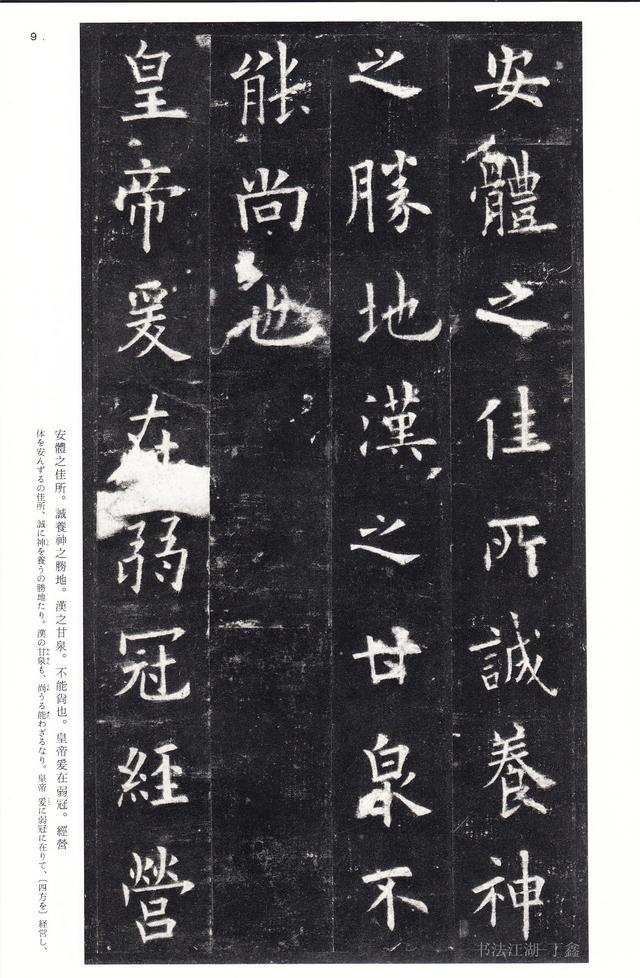 9.
安體之佳所誠養神
之勝地漢之甘泉不
能尚也
皇帝爰在弱冠經營
安體之佳所。誠養神之勝地。漢之甘泉。不能尙也。皇帝爰在弱冠。經營
体を安んずるの佳所、誠に神を養うの勝地たり。漢の甘泉も、尚うる能わざるなり。皇帝 爰に弱冠に在りて、〔四方を〕経営し、
书法江湖 丁鑫